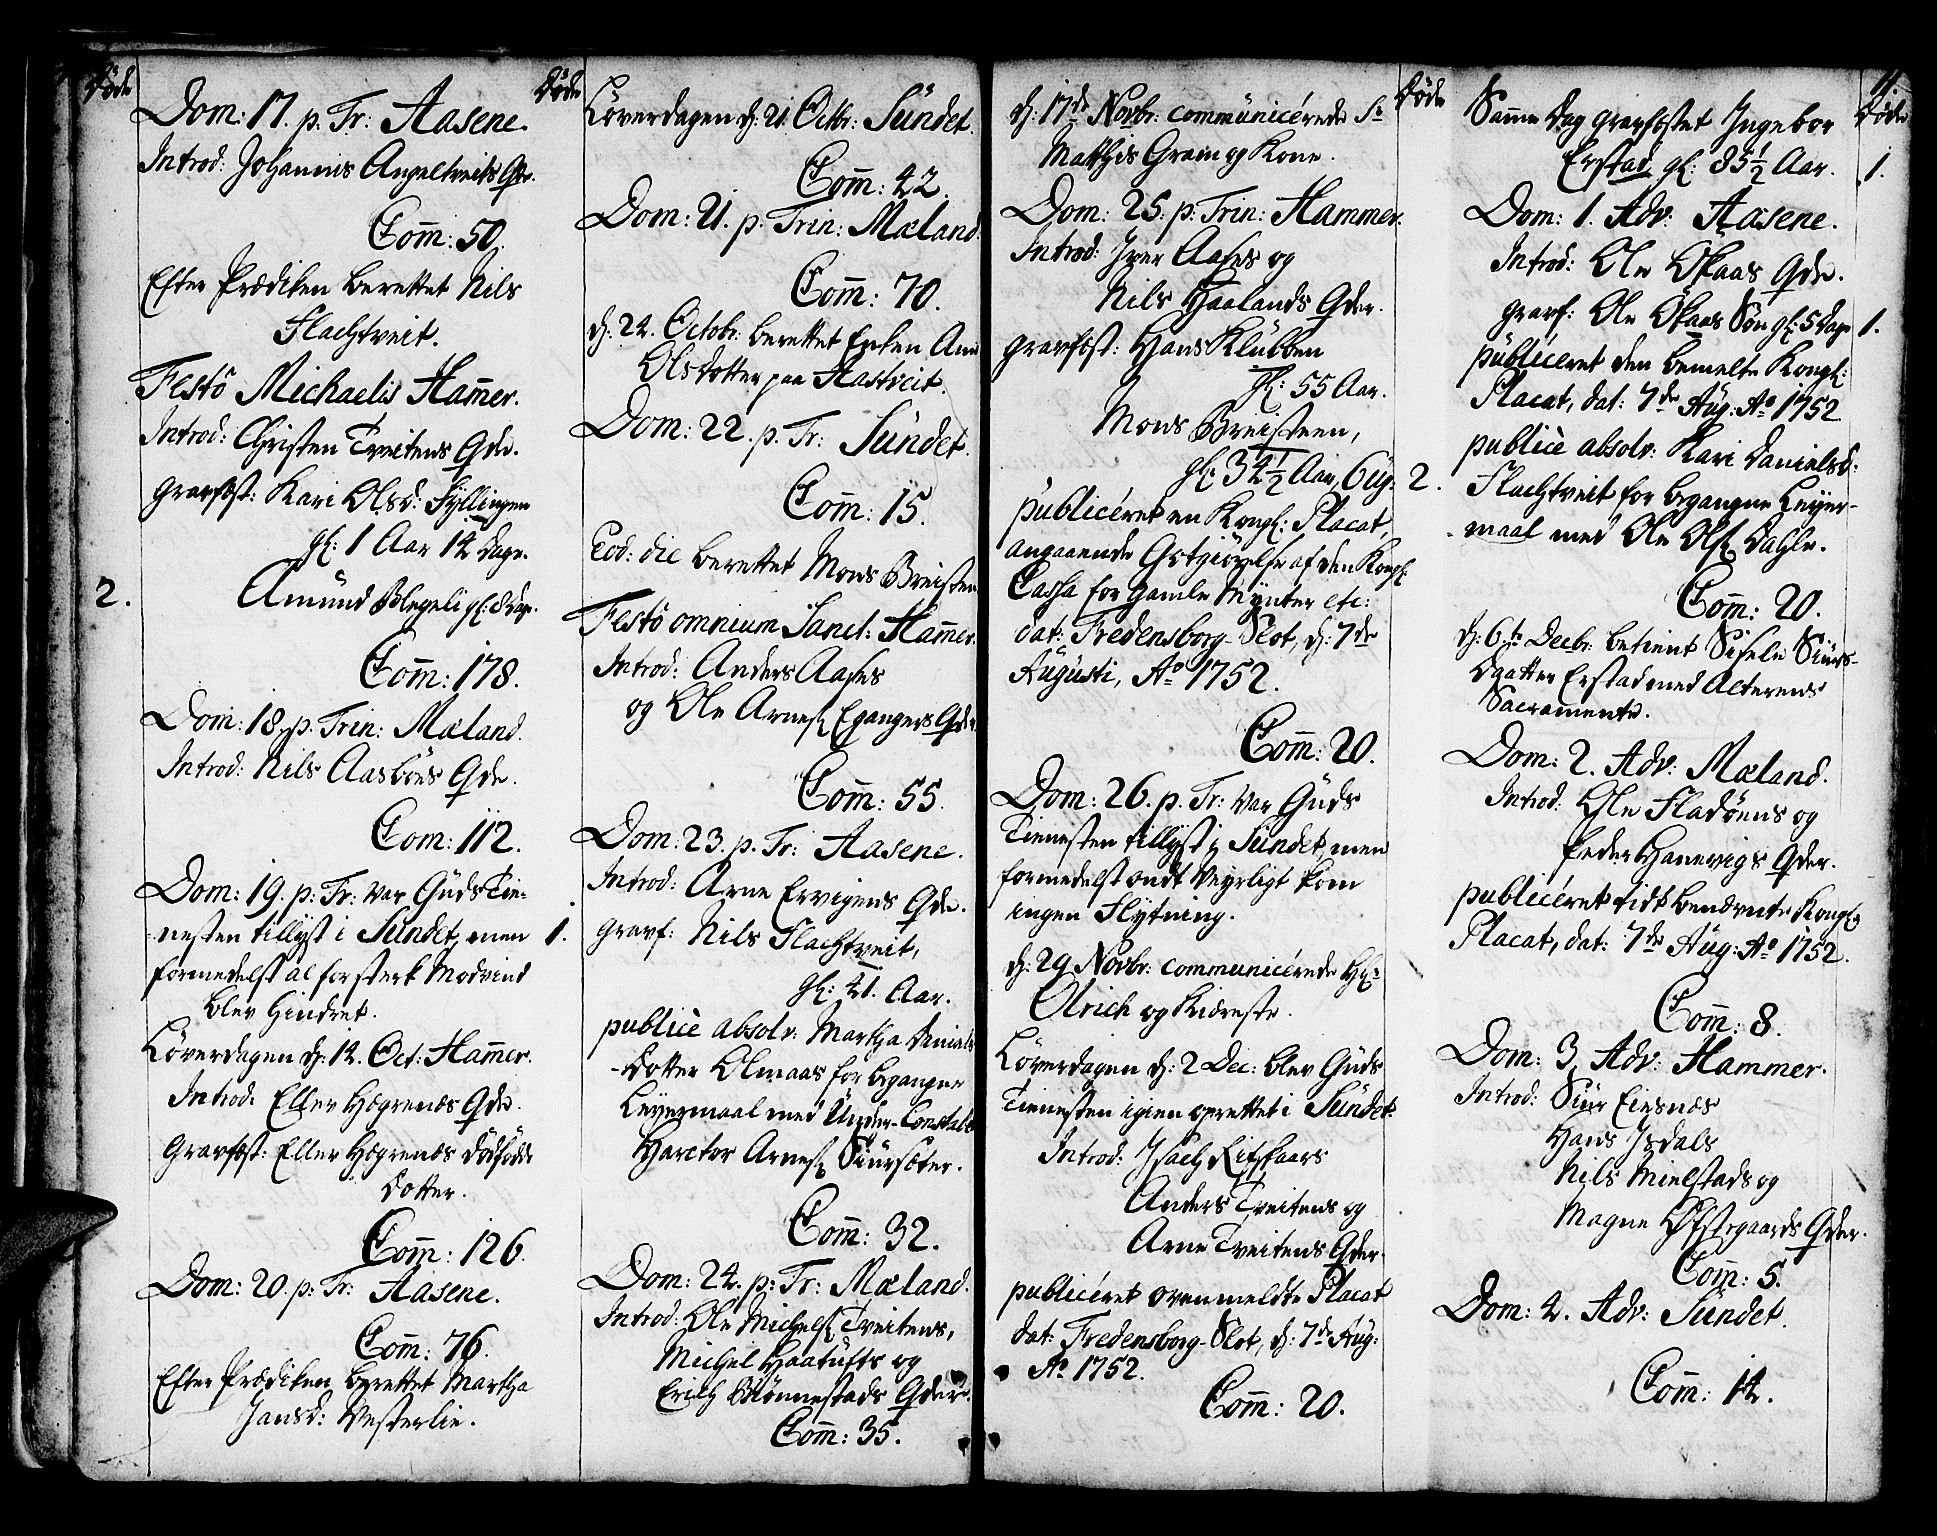 Döde
Dom: 17. p. Tr: Aasene.
Introd: Johannis Angeltveits Qde.
Com̄: 50.
Efter Prædiken berettet Nils
Flachtveit.
Festo Michaelis Ham̄er.
Introd: Christen Tveitens Qde.
gravfest: Kari Olsd: Fÿllingen
gl: 1 Aar 14 Dage.
2. Amund Blegeli gl: 8 Dage.
Com̄: 178.
Dom: 18. p. Trin: Mæland.
Introd: Nils Aasböes Qde.
Com: 112.
Dom: 19. p: Tr: var Guds Tie-
nesten tillyst i Sundet, men
formedelst al for sterk Modvind
blev hindret.
Löverdagen d: 14. Oct: Ham̄er.
Introd. Eller Högrenæs Qde.
Gravfest: Eller Högrenæs dödfödde
Dotter.
Com̄: 126.
Dom: 20. p: Tr: Aasene.
Com̄: 76.
Efter Prædiken berettet Martha
Jansd: Vesterlie.
Döde
Löverdagen d: 21. Octbr: Sundet.
Com̄: 42.
Dom: 21. p. Trin: Mæland.
Com̄: 70.
d: 24. Octobr: berettet Enken Ann
Olsdotter paa Hastveit.
Dom: 22. p. Tr: Sundet.
Com̄: 15.
Eod: die berettet Mons Breisten
Festo omnium Sanct: Ham̄er.
Introd: Anders Aases
og Ole Arnes. Egangers Qder
Com̄: 55.
Dom: 23. p. Tr: Aasene.
Introd: Arne Ervigens Qde.
1. gravf: Nils Flachtveit,
gl: 41. Aar.
publicè absolv: Martha Daniels
-dotter Olmaas for begangne
Leyermaal med Under-Constabl
Arnes.
Com̄: 32.
Dom: 24. p: Tr: Mæland.
Introd: Ole Michels. Tveitens,
Michel Haatufts og
Erich Mönnestads Qder.
Com̄: 35.
d: 17de Novbr: communicérede Sr
Matthis Gram og Kone.
Dom: 25. p: Trin: Hammer.
Introd: Iver Aases og
Nils Haalands Qder.
gravfest: Hans Klubben
gl: 55 Aar.
Mons Breisteen,
gl: 34½ Aar, 6 Ug:
publicéret en Kongl: Placat,
angaaende Gotgiörelse af den Kongl:
Cassa for gamle Mÿnter etc:
dat: Fredensborg-Slot, d: 7de
Augusti, Ao 1752.
Com̄: 20.
Dom: 26. p. Tr: var Guds
Tienesten tillyst i Sundet, men
formedelst ondt Veyrligt kom
ingen Flytning.
d: 29 Novbr: communicérede Hr:
Olrich og Kiereste.
Löverdagen d: 2 Dec: blev Guds
Tienesten igien oprettet i Sundet.
Introd: Isach Ritskaars
Anders Tveitens og
Arne Tveitens Qder.
publicéret ovenmeldte Placat
dat: Fredensborg-Slot, d: 7de Aug:
Ao 1752.
Com̄: 20.
Döde
2.
11.
Döde
Sam̄e Dag gravfestet Ingebor
Erstad, gl: 85½ Aar. 1.
Dom: 1. Adv: Aasene.
Introd: Ole Okaas Qde.
gravf: Ole Okaas Søn gl: 5 Dage 1.
publicéret den bemelte Kongl:
Placat, dat: 7de Aug: Ao 1752
publicè absolv: Kari Danielsd:
Flachtveit for begangne Leyer-
maal med Ole Ols. Dahle.
Com̄: 20.
d: 6te Decbr: betient Sisele Siurs-
Daatter Erstad med Alterens
Sacramente.
Dom: 2. Adv: Mæland.
Introd: Ole Fladöens og
Peder Hanevigs Qder.
publicéret tidt benævnte Kongl:
Placat, dat: 7de Aug: Ao 1752.
Com̄: 8.
Dom: 3. Adv: Hammer.
Introd: Siur Eiesnæs
Hans Isdals
Nils Mielstads og
Magne Qder.
Com̄: 5.
Dom: 4. Adv: Sundet.
Com̄: 14.